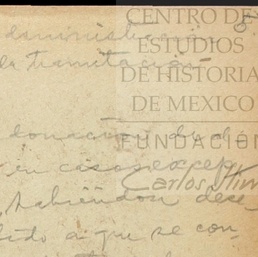 CENTRO DE
ESTUDIOS
DE HISTORIA
DE MEXICO
FUNDACIÓN
Carlos Slim
administración
la tramitación
donación de
en casos excep
habiéndon dese
bido a que se con